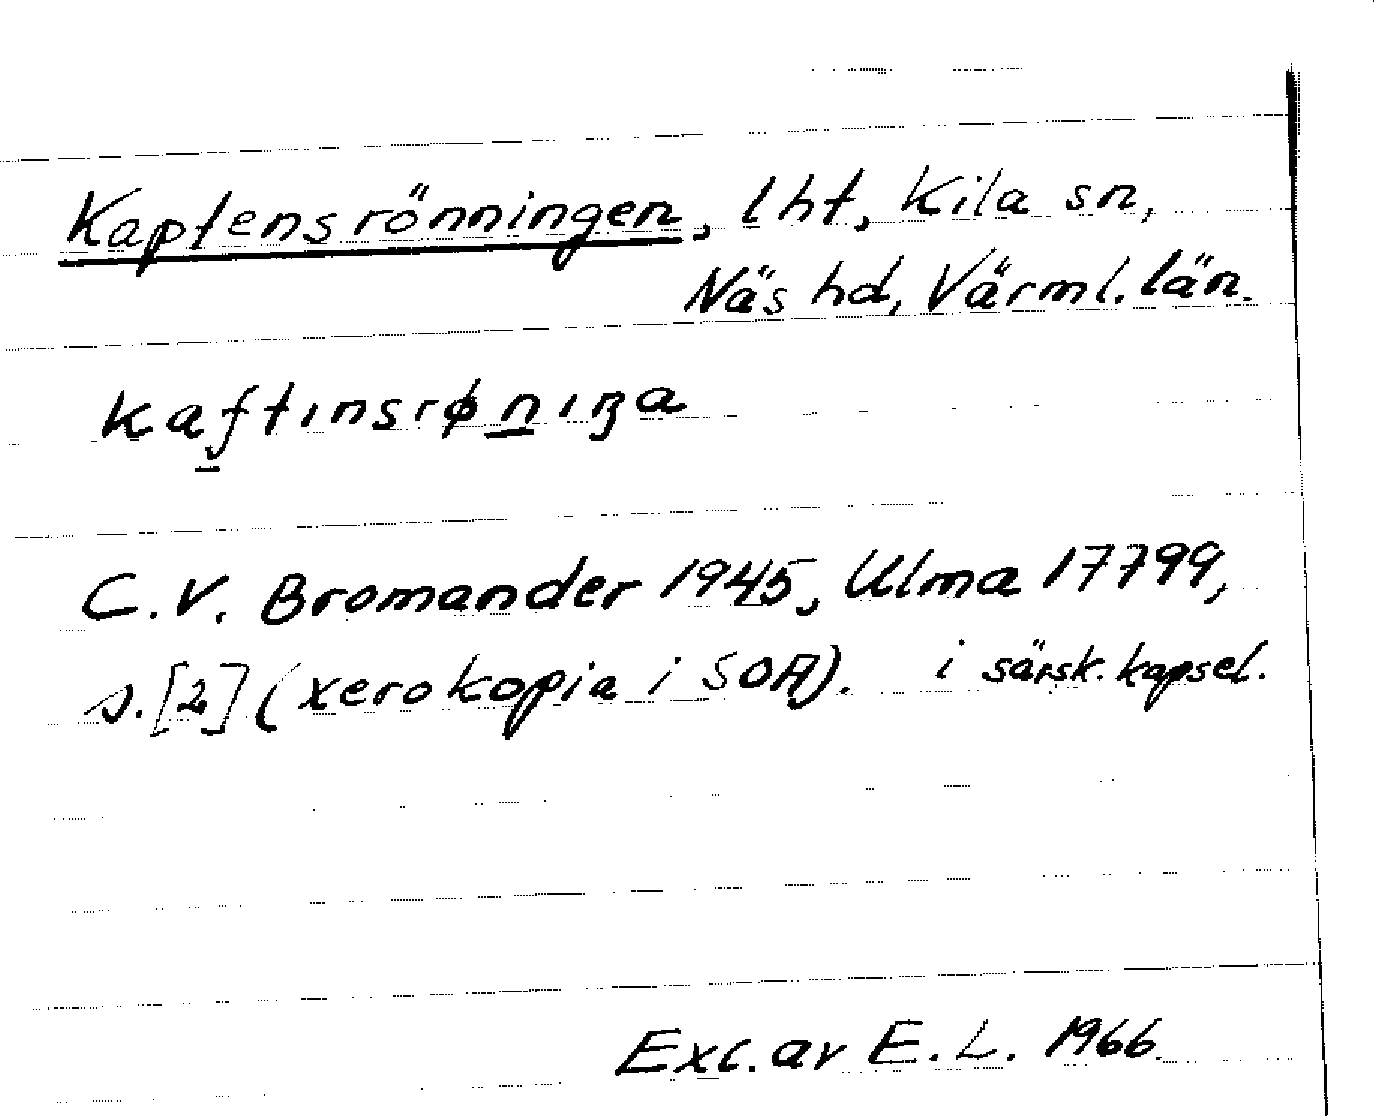 Kaptensrönningen, lht, Kila sn,
Näs hd, Värml. län.
kaf̱tınsrøṉıŋa
C. V. Bromander 1945, Ulma 17799,
s. [2] (xerokopia i SOA). i särsk. kapsel.
Exc. av E. L. 1966.